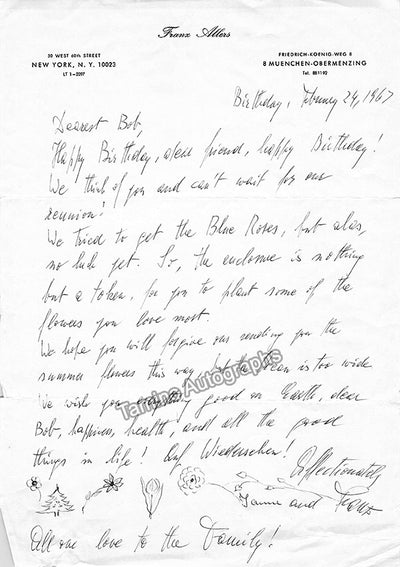 Franz Allers
30 WEST 60th STREET
NEW YORK, N. Y. 10023
LT 1-2207
FRIEDRICH-KOENIG-WEG 8
8 MUENCHEN-OBERMENZING
Tel. 881192
Birthday, February 24, 1967
Dearest Bob,
Happy Birthday, dear friend, happy Birthday!
We think of you and can't wait for our
reunion!
We tried to get the Blue Roses, but alas,
no luck yet. So, the enclosure is nothing
but a token, for you to plant some of the
flowers you love most.
We hope you will forgive our sending you the
summer flowers this way, but the Ocean is too wide
We wish you everything good on Earth, dear
Bob, happiness, health, and all the good
things in life! Auf Wiedersehen!
Affectionately
Janne and Franz
All our love to the Family!
Tamino Autographs